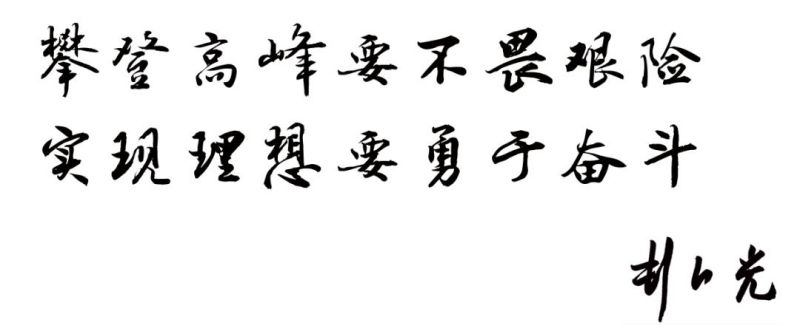 攀登高峰要不畏艰险
实现理想要勇于奋斗
光